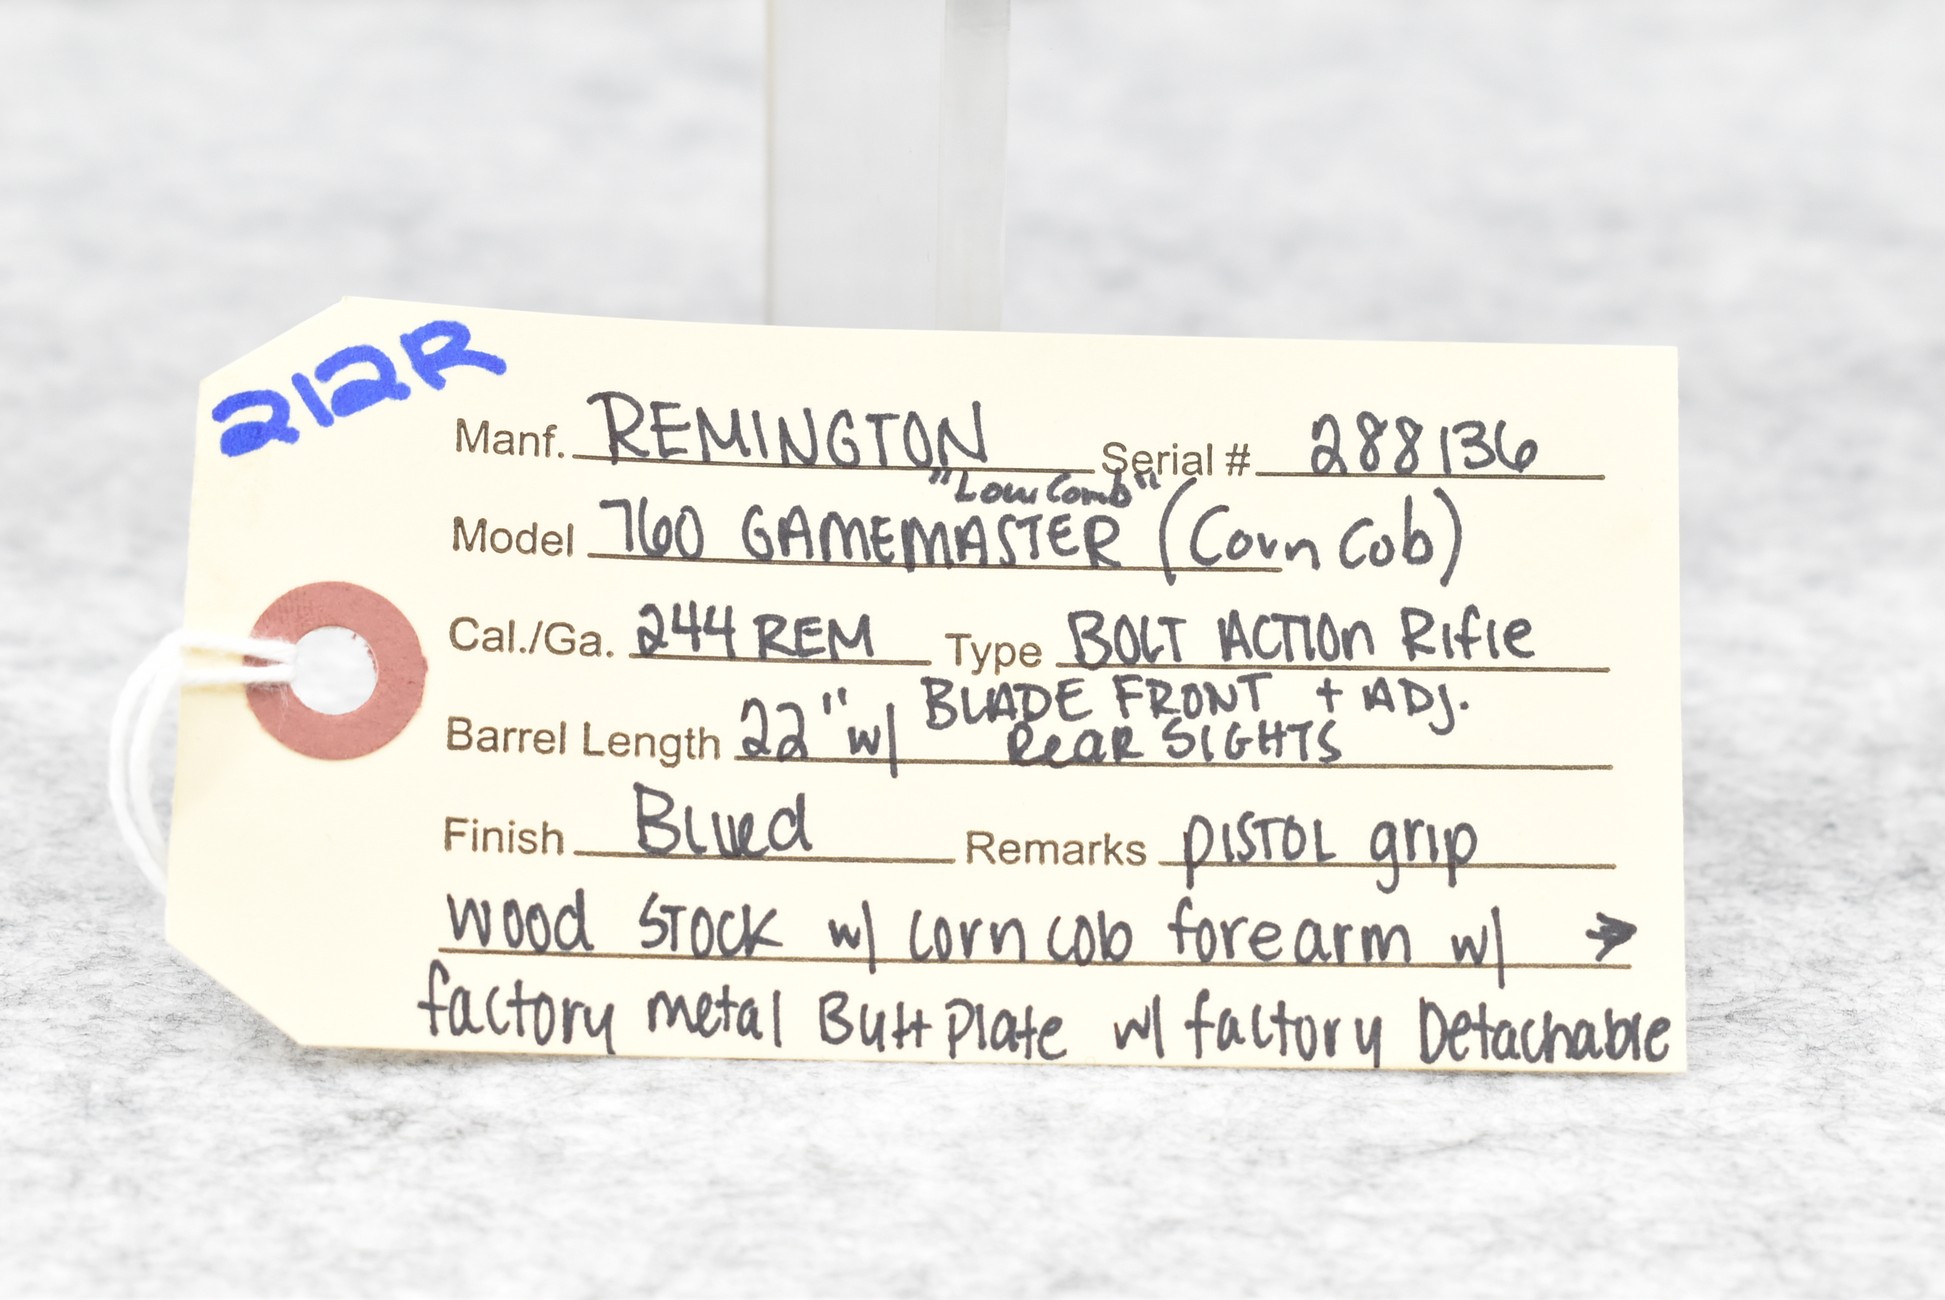 212R
Manf. REMINGTON Serial # 288136
"Low Comb"
Model 760 GAMEMASTER (Corn Cob)
Cal./Ga. 244 REM Type BOLT ACTION Rifle
BLADE FRONT + ADJ.
Barrel Length 22" w/ Rear SIGHTS
Finish Blued Remarks PISTOL grip
wood STOCK w/ corn cob forearm w/ →
factory metal Butt Plate w/ factory Detachable